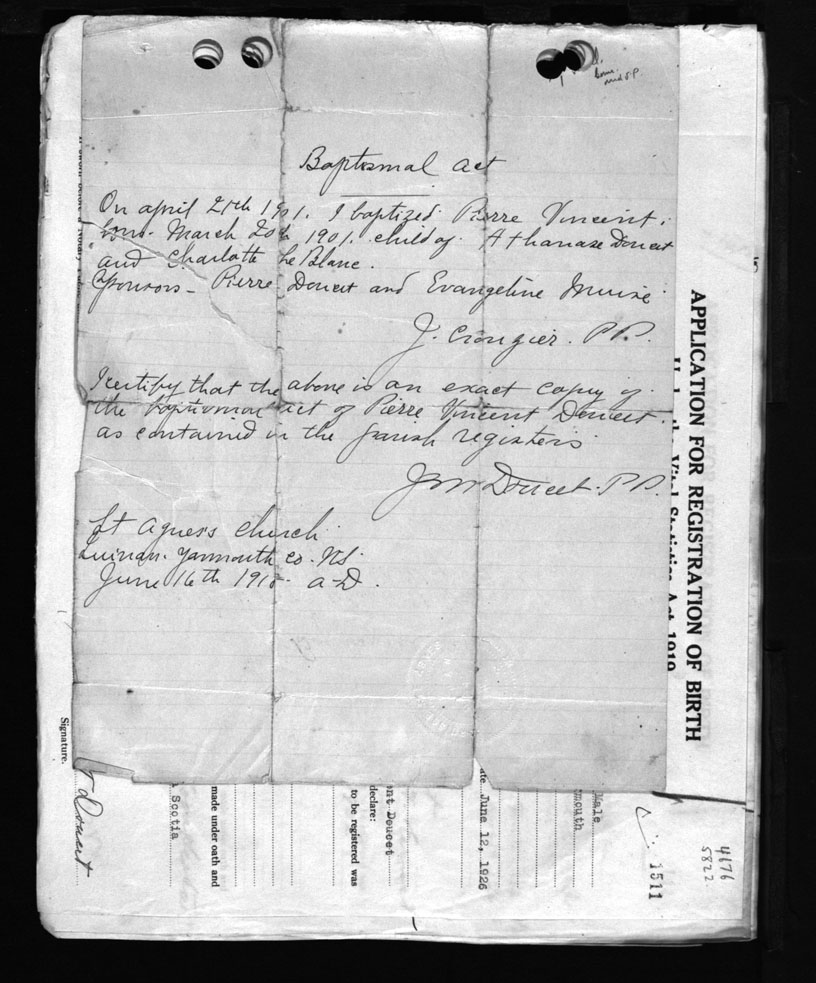 Baptismal Act
On April 21th 1901. I baptized Pierre Vincent,
born March 20th 1901. child of Athanase Doucet
and Charlotte Le Blanc.
Sponsors - Pierre Doucet and Evangeline Muise
J. Crouzier. P.P.
I certify that the above is an exact copy of
the baptismal act of Pierre Vincent Doucet.
as contained in the parish registers
J M Doucet. P.P.
St Agnes's Church
Quinan. Yarmouth Co. NS.
June 16th A.D.
APPLICATION FOR REGISTRATION OF BIRTH
Under the Vital Statistics Act, 1919
Signature.
Doucet
Scotia
made under oath and
to be registered was
declare:
nt Doucet
ate June 12, 1926
mouth
Male
1511
4176
5822